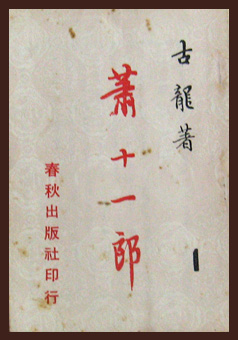 古龍著
蕭十一郎
春秋出版社印行
1